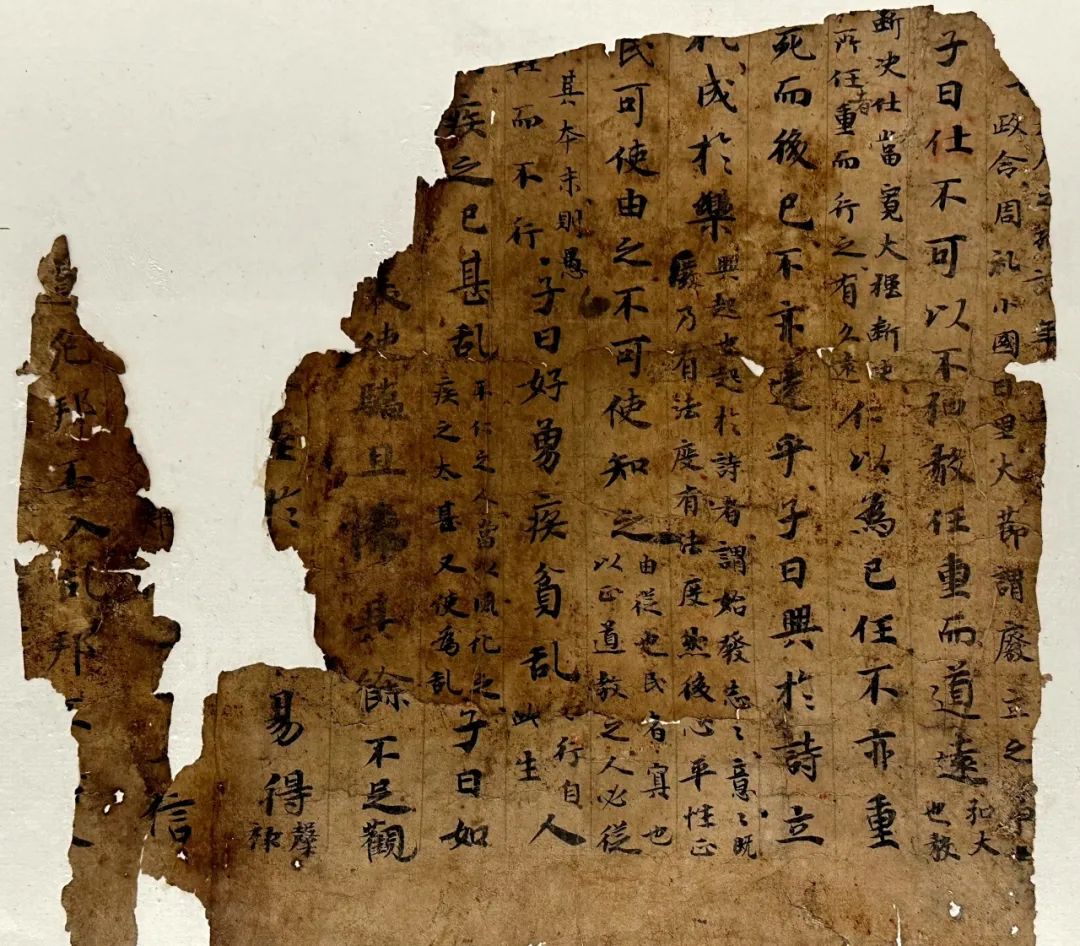 政令周礼小國曰里大莭謂廢立之
子曰仕不可以不弘毅任重而道遠
弘大
也毅
断决仕當寛大強断
所任者重而行之有久遠
仁以為己任不亦重
死而後已不亦遠乎子曰興於詩立
礼成於樂
興起也起於詩者謂始發志〻意〻既
乃有法度有法度然後心平性正
民可使由之不可使知之
由從也民者冥也
以正道教之人必從
其本末則愚
而不行
子曰好勇疾貧乱
行自
此生
人
疾之已甚乱
不仁之人當以風化之
疾之太甚又使為乱
子曰如
使驕且悋其餘不足觀
至於
易得
聲
祿
信
危邦不入乱邦